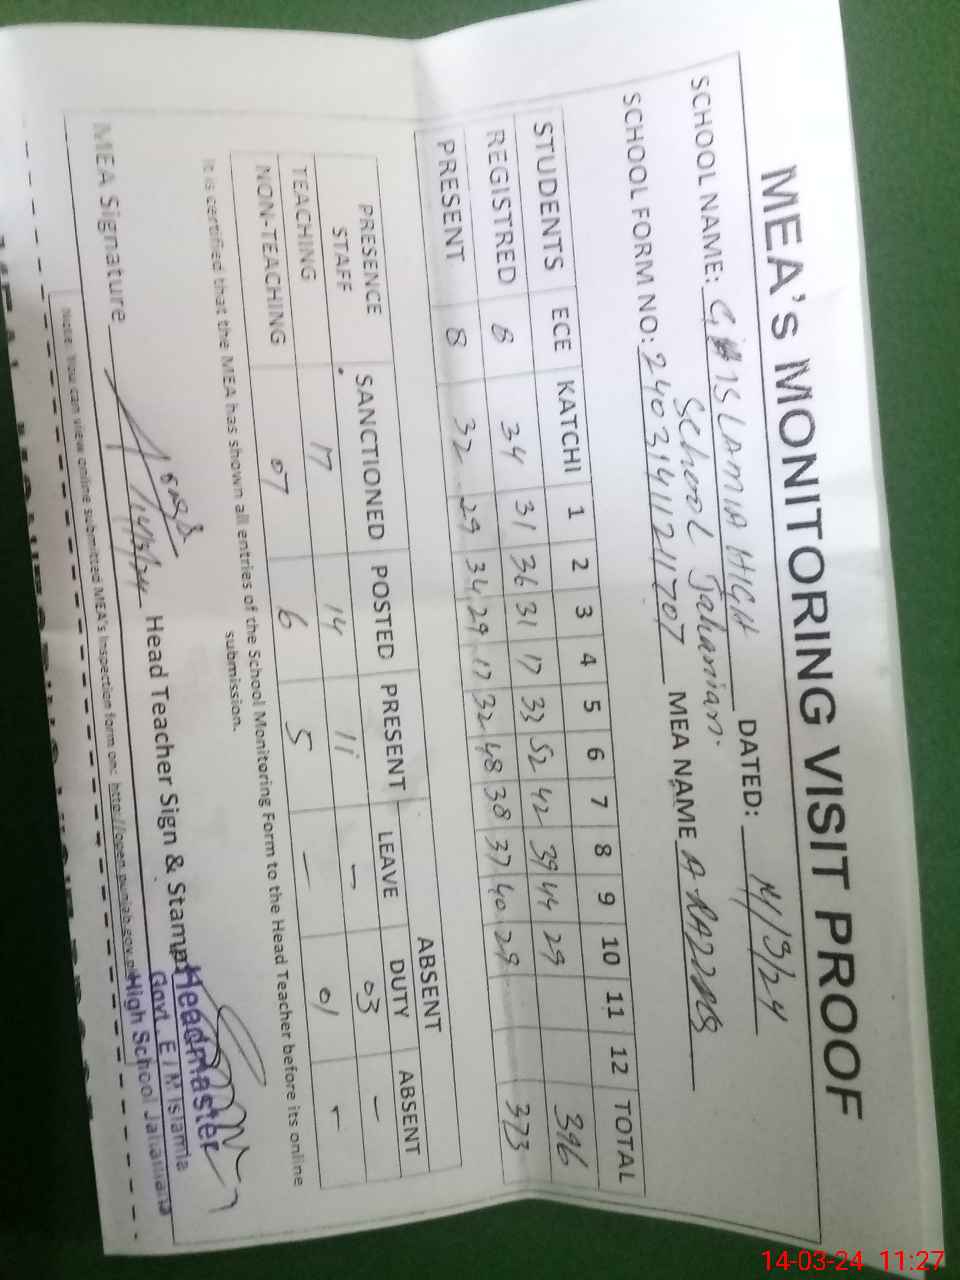 MEA's MONITORING VISIT PROOF
SCHOOL NAME: ISLAMIA HIGH DATED: 14/3/24
School Jahanian.
SCHOOL FORM NO: 2403141121707 MEA NAME A RAZZAQ
STUDENTS ECE KATCHI 1 2 3 4 5 6 7 8 9 10 11 12 TOTAL
REGISTRED 8 34 31 36 31 17 33 52 42 39 44 29 396
PRESENT 8 32 29 34 29 17 32 48 38 37 40 29 373
PRESENCE STAFF SANCTIONED POSTED PRESENT LEAVE ABSENT DUTY ABSENT
TEACHING 17 14 11 – 03 –
NON-TEACHING 07 6 5 – 01 –
It is certified that the MEA has shown all entries of the School Monitoring Form to the Head Teacher before its online
submission.
MEA Signature 14/3/24 Head Teacher Sign & Stamp
Headmaster
Govt. E / M Islamia
High School Jahaniana
Note: You can view online submitted MEA's Inspection form on: http://open.punjab.gov.pk
14-03-24 11:27